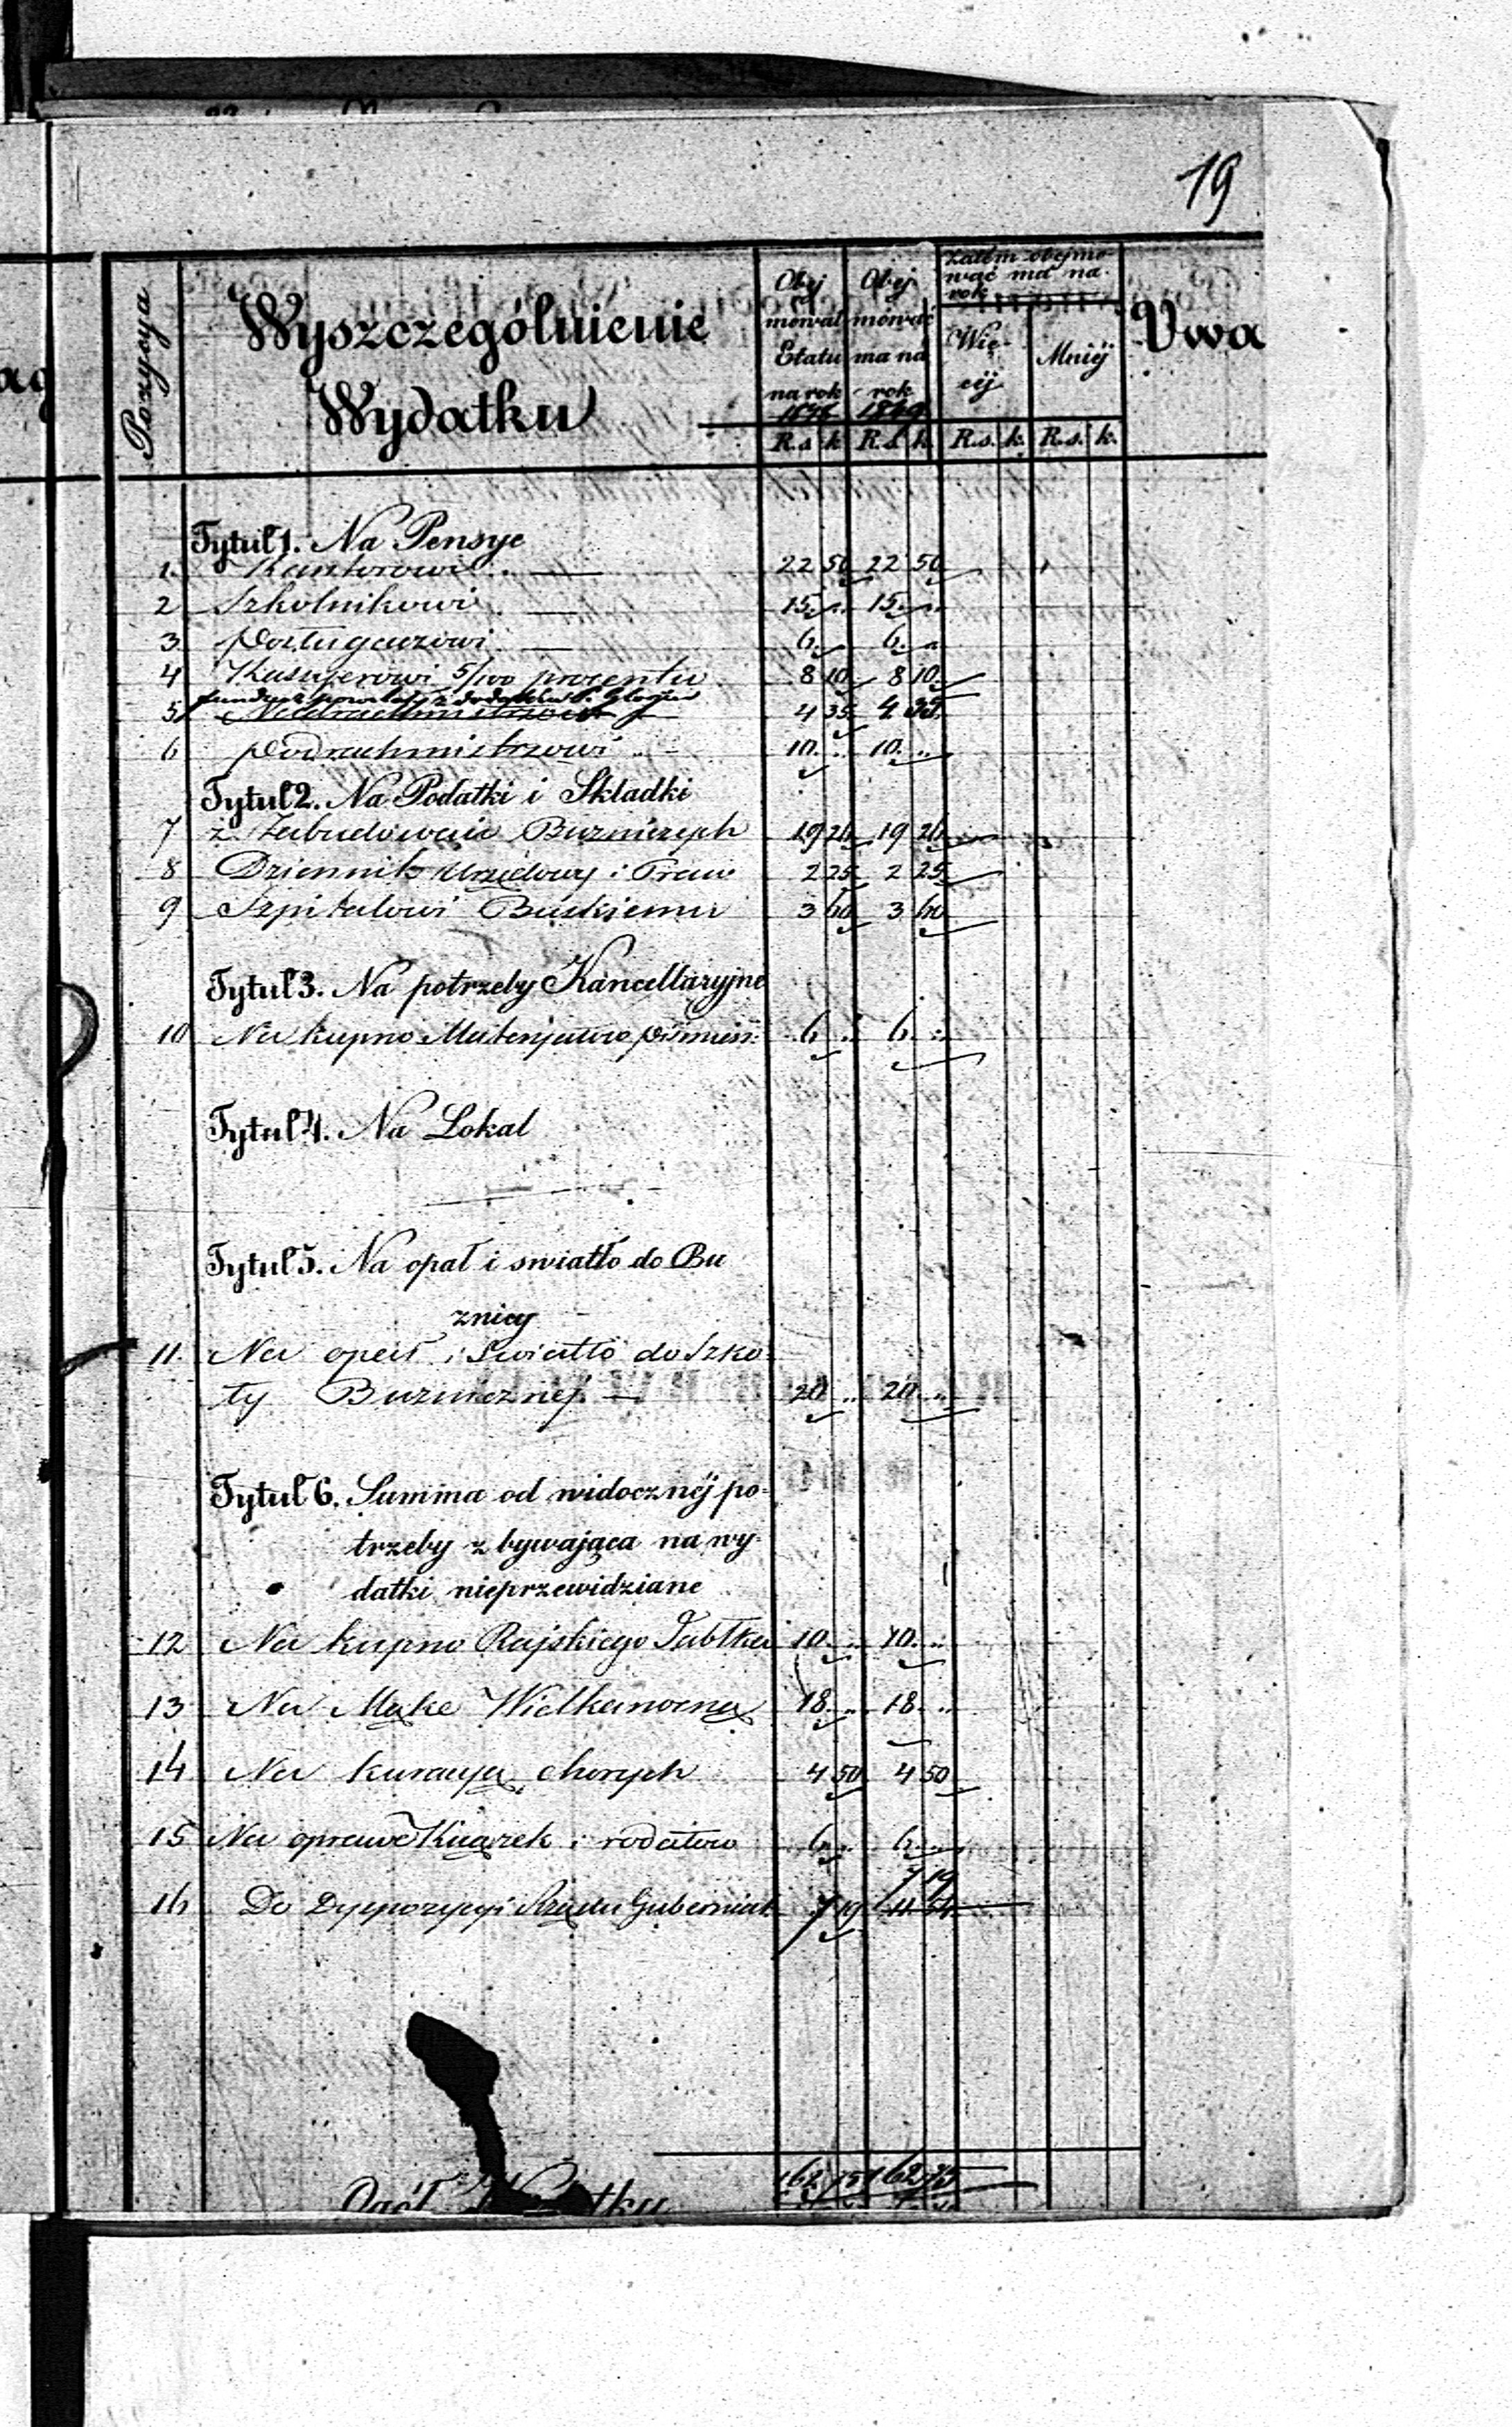 19
Pozycya
Wyszczególnienie
Wydatku
Obej
mował
Etatu
na rok
Obej
mować
ma na
rok
1849
Zatem obejmo-
wać ma na
rok
Wię-
cej
Mniéj
Uwa
R.s. k. R.s. k. R.s. k. R.s. k.
Tytuł 1. Na Pensye
1. Kantorowi 22 50 22 50
2 Szkolnikowi 15 .. 15 ..
3 6 .. 6 ..
4 Kassyerowi 5/100 procentu 8 10 8 10
5 4 35 4 35
6 Podrachmistrzowi 10 .. 10 ..
Tytuł 2. Na Podatki i Składki
7 z Zabudowań Buzniczych 19 26 19 26
8 Dziennik Urzędowy i Praw 2 25 2 25
9 Szpitalowi Buskiemu 3 60 3 60
Tytuł 3. Na potrzeby Kancellaryjne
10 Na kupno Materjałow piśmien: 6 .. 6 ..
Tytuł 4. Na Lokal
Tytuł 5. Na opał i swiatło do Bu
znicy
11. Na opał i Swiatło do Szko
ły Buzniczney 20 .. 20 ..
Tytuł 6. Summa od widocznéj po-
trzeby zbywająca na wy-
datki nieprzewidziane
12 Na kupno Rajskiego Jabłka 10 .. 10 ..
13 Na Mąke Wielkanocną 18 .. 18 ..
14 Na kuracyą chorych 4 50 4 50
15 Na oprawe Książek i rodałow 6 .. 6 ..
7 19
16 Do Dyspozycyi Rządu Guberniał 7 19 11 54
162 75 162 75